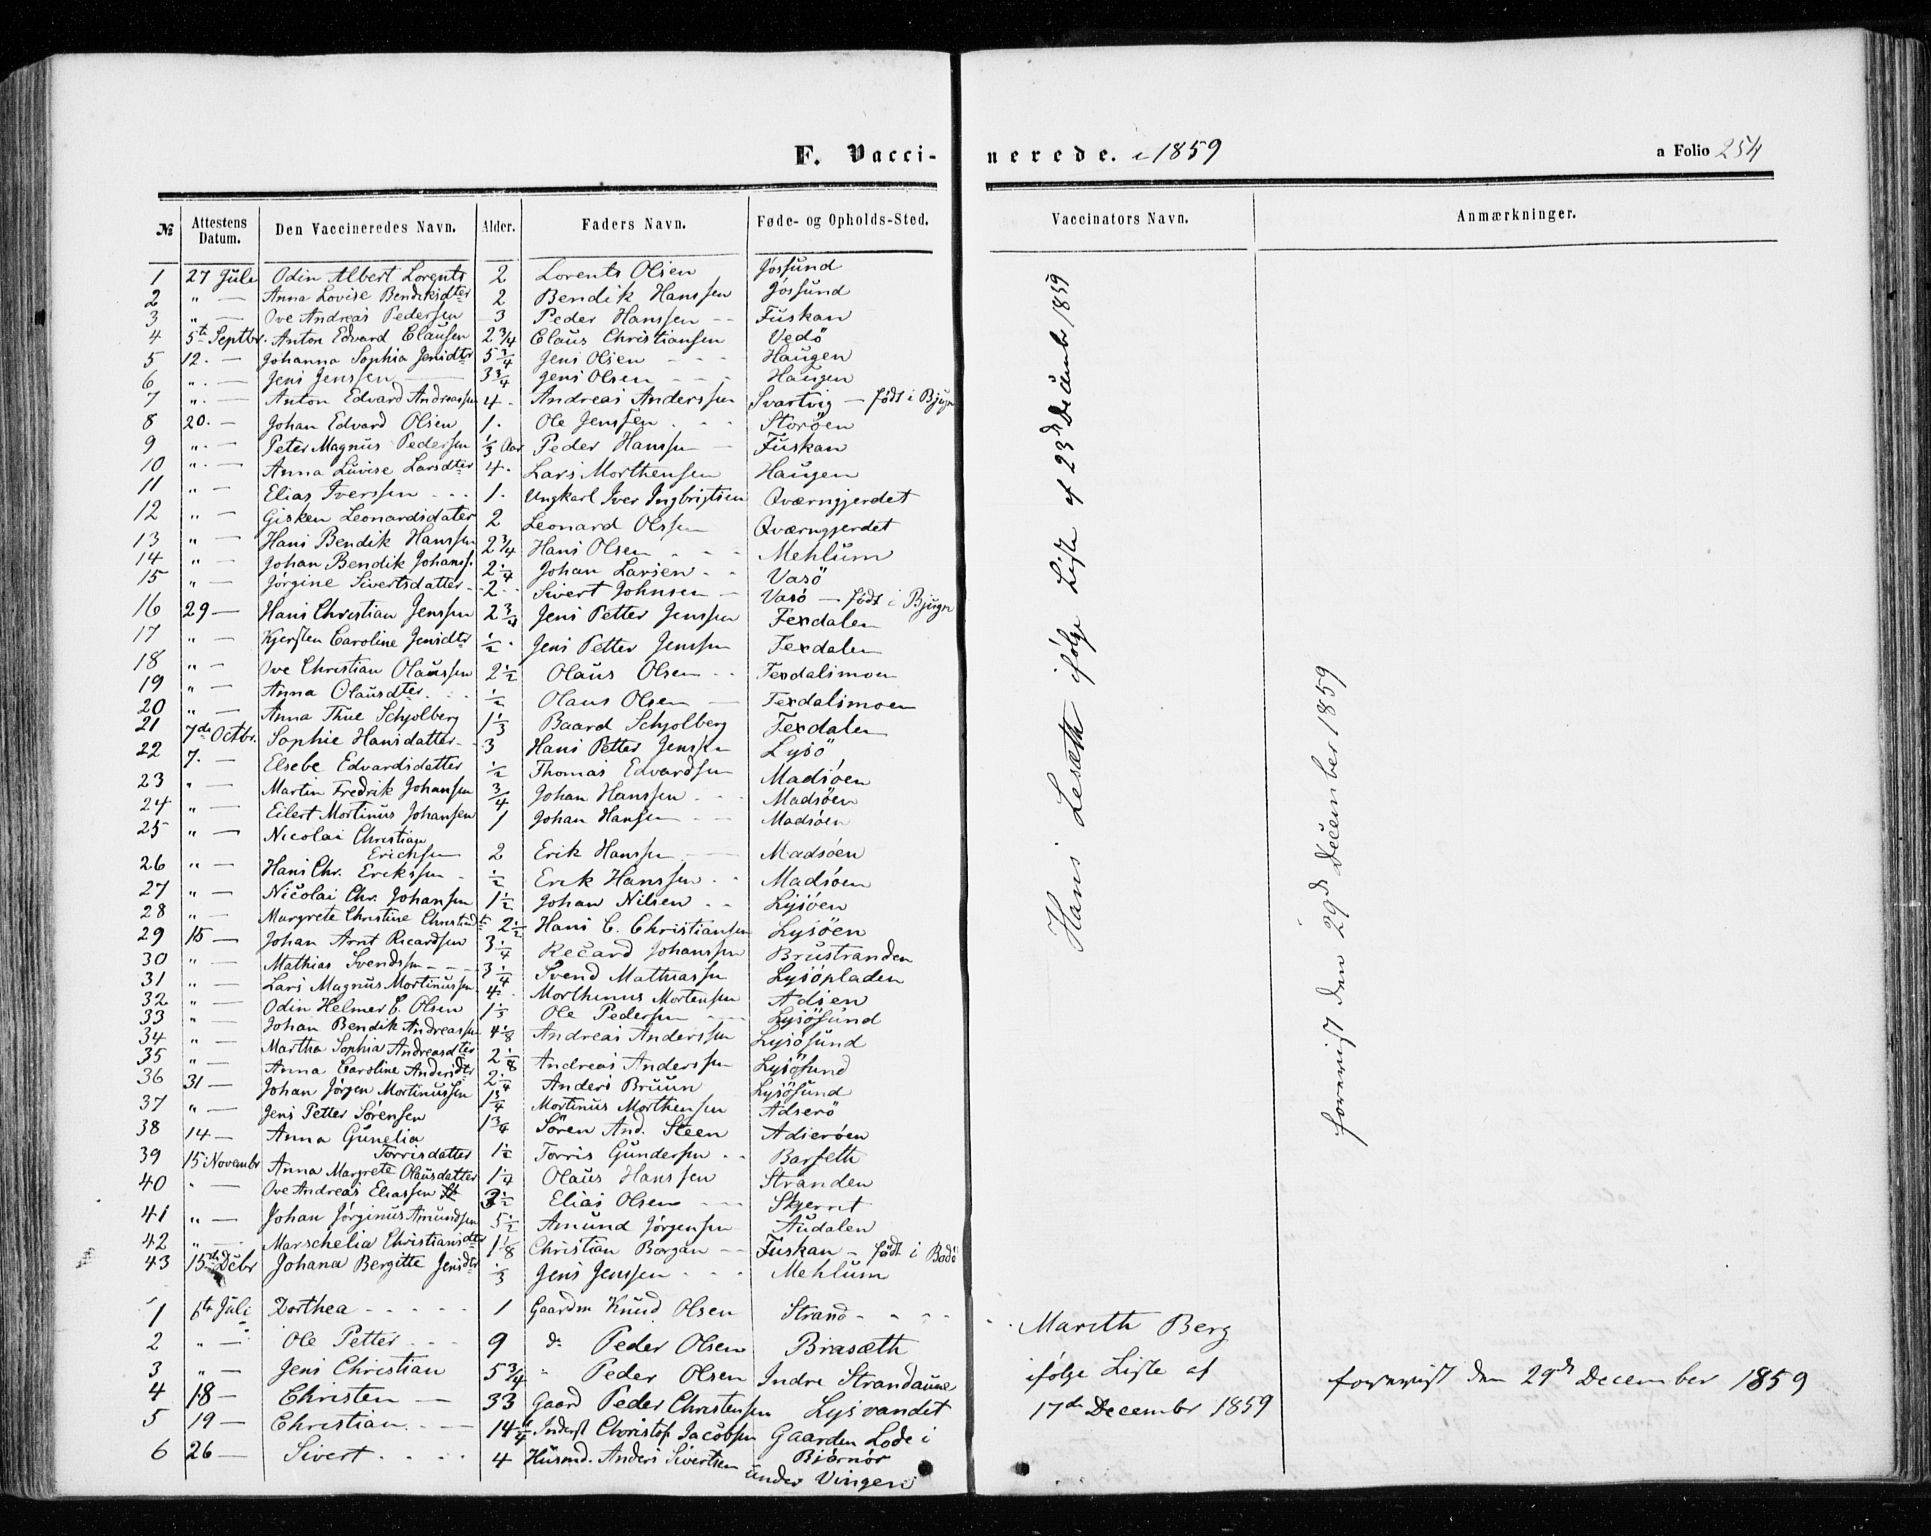 F. Vacci- nerede. i 1859 a Folio 254
№ Attestens Datum. Den Vaccineredes Navn. Alder. Faders Navn. Føde- og Opholds-Sted. Vaccinators Navn. Anmærkninger.
1 27 Juli Odin Albert Lorents 2 Lorents Olsen Jøssund
2 " — Anna Lovise Bendiksdter 2 Bendik Hanssen Jøssund
3 " — Ove Andreas Pedersen 3 Peder Hanssen Fuskan
4 5te Septbr. Anton Edvard Clausen 2 3/4 Claus Christiansen Vedø
5 12. — Johanna Sophia Jensdtr 5 3/4 Jens Olsen Haugen
6 " — Jens Jenssen 3 3/4 Jens Olsen Haugen
7 " — Anton Edvard Andreassen 4 Andreas Anderssen Svartvig — født i Bjugn
8 20. — Johan Edvard Olsen 1. Ole Jenssen Storöen
9 " — Peter Magnus Pedersen 1/3 Aar Peder Hanssen Fuskan
10 " — Anna Luvise Larsdter 4. Lars Morthensen Haugen
11 " — Elias Iverssen 1. Ungkarl Iver Ingbrigtsen Qværngjerdet
12 " — Gisken Leonardsdater 2 Leonard Olssen Qværngjerdet
13 " — Hans Bendik Hanssen 2 3/4 Hans Olsen Mehlum
14 " — Johan Bendik Johanss. 2 1/4 Johan Larsen Vasö
15 " — Jørgine Sivertsdatter 2 Sivert Johnsen Vasö — født i Bjugn
16 29 — Hans Christian Jenssen 2 3/4 Jens Petter Jenssen Texdalen
17 " — Kjersten Caroline Jensdtr 1/2 Jens Petter Jenssen Texdalen
18 " — Ove Christian Olaussen 2 1/2 Olaus Olsen Texdalsmoen
19 " — Anna Olausdter 1/2 Olaus Olsen Texdalsmoen
20 " — Anna Thue Schjolberg 1 1/3 Baard Schjolberg Texdalen
21 7de Octbr. Sophie Hansdatter 3 Hans Petter Jenssen Lysö
22 7. — Elsebe Edvardsdatter 1/2 Thomas Edvardsen Madsöen
23 " — Martin Fredrik Johansen 3/4 Johan Hanssen Madsöen
24 " — Eilert Mortinus Johansen 1 Johan Hansen Madsöen
25 " — Nicolai Christian
Erichsen 2 Erik Hanssen Madsöen
26 " — Hans Chr. Erikssen 1/2 Erik Hanssen Madsöen
27 " — Nicolai Chr. Johansen 1 1/2 Johan Nilsen Lysöen
28 " — Margrete Christine Christiansdtr 2 1/2 Hans C. Christiansen Lysöen
29 15 — Johan Arnt Ricardsen 3 1/4 Recard Johanssen Brustranden
30 " — Mathias Svendssen 3 1/4 Svend Mathiassen Lysöpladen
31 " — Lars Magnus Mortinussen 4 Morthinus Mortensen Adsen
32 " — Odin Helmer E. Olsen 1 1/3 Ole Pedersen Lysösund
33 " — Johan Bendik Andreassen 4 1/8 Andreas Anderssen Lysösund
34 " — Martha Sophia Andreasdter 2 1/8 Andreas Anderssen Lysösund
35 " — Anna Caroline Andersdtr 2 1/4 Anders Bruun Lysösund
36 31 — Johan Jørgen Mortinussen 1 3/4 Mortinus Morthensen Adserö
37 " — Jens Petter Sörensen 1 3/4 Sören And. Steen Adseröen
38 14 — Anna Gunelia
Torrisdatter 1 1/2 Torris Gundersen Barseth
39 15 Novembr Anna Margrete Olausdatter 1 1/4 Olaus Hanssen Stranden
40 " — Ove Andreas Eliassen 3 1/2 Elias Olsen Skjerret
41 " — Johan Jörginus Amundsen 5 1/2 Amund Jørgensen Audalen
42 " — Marschelia Christiansdtr 1 1/8 Christian Borgan Fuskan — født i Bodö
43 15de Debr Johana Bergitte Jensdtr 1/3 Jens Jenssen Mehlum
Hans Lesæth ifølge Liste af 23de December 1859
forevist den 29de December 1859
1 6te Juli Dorthea 1 Gaardm Knud Olsen Strand
2 " — Ole Petter 9 do Peder Olsen Brasæth
3 " — Jens Christian 5 3/4 " Peder Olsen Indre Strandaune
4 18 — Christen 33 Gaard Peder Christensen Lysvandet
5 19 — Christian 14 1/4 Inderst Christof Jacobsen Gaarden Lode i
Bjørnør
6 26 — Sivert 4 Husmd. Anders Sivertsen under Vingen
Mareth Berg
ifølge Liste af
17de December 1859
forevist den 29de December 1859